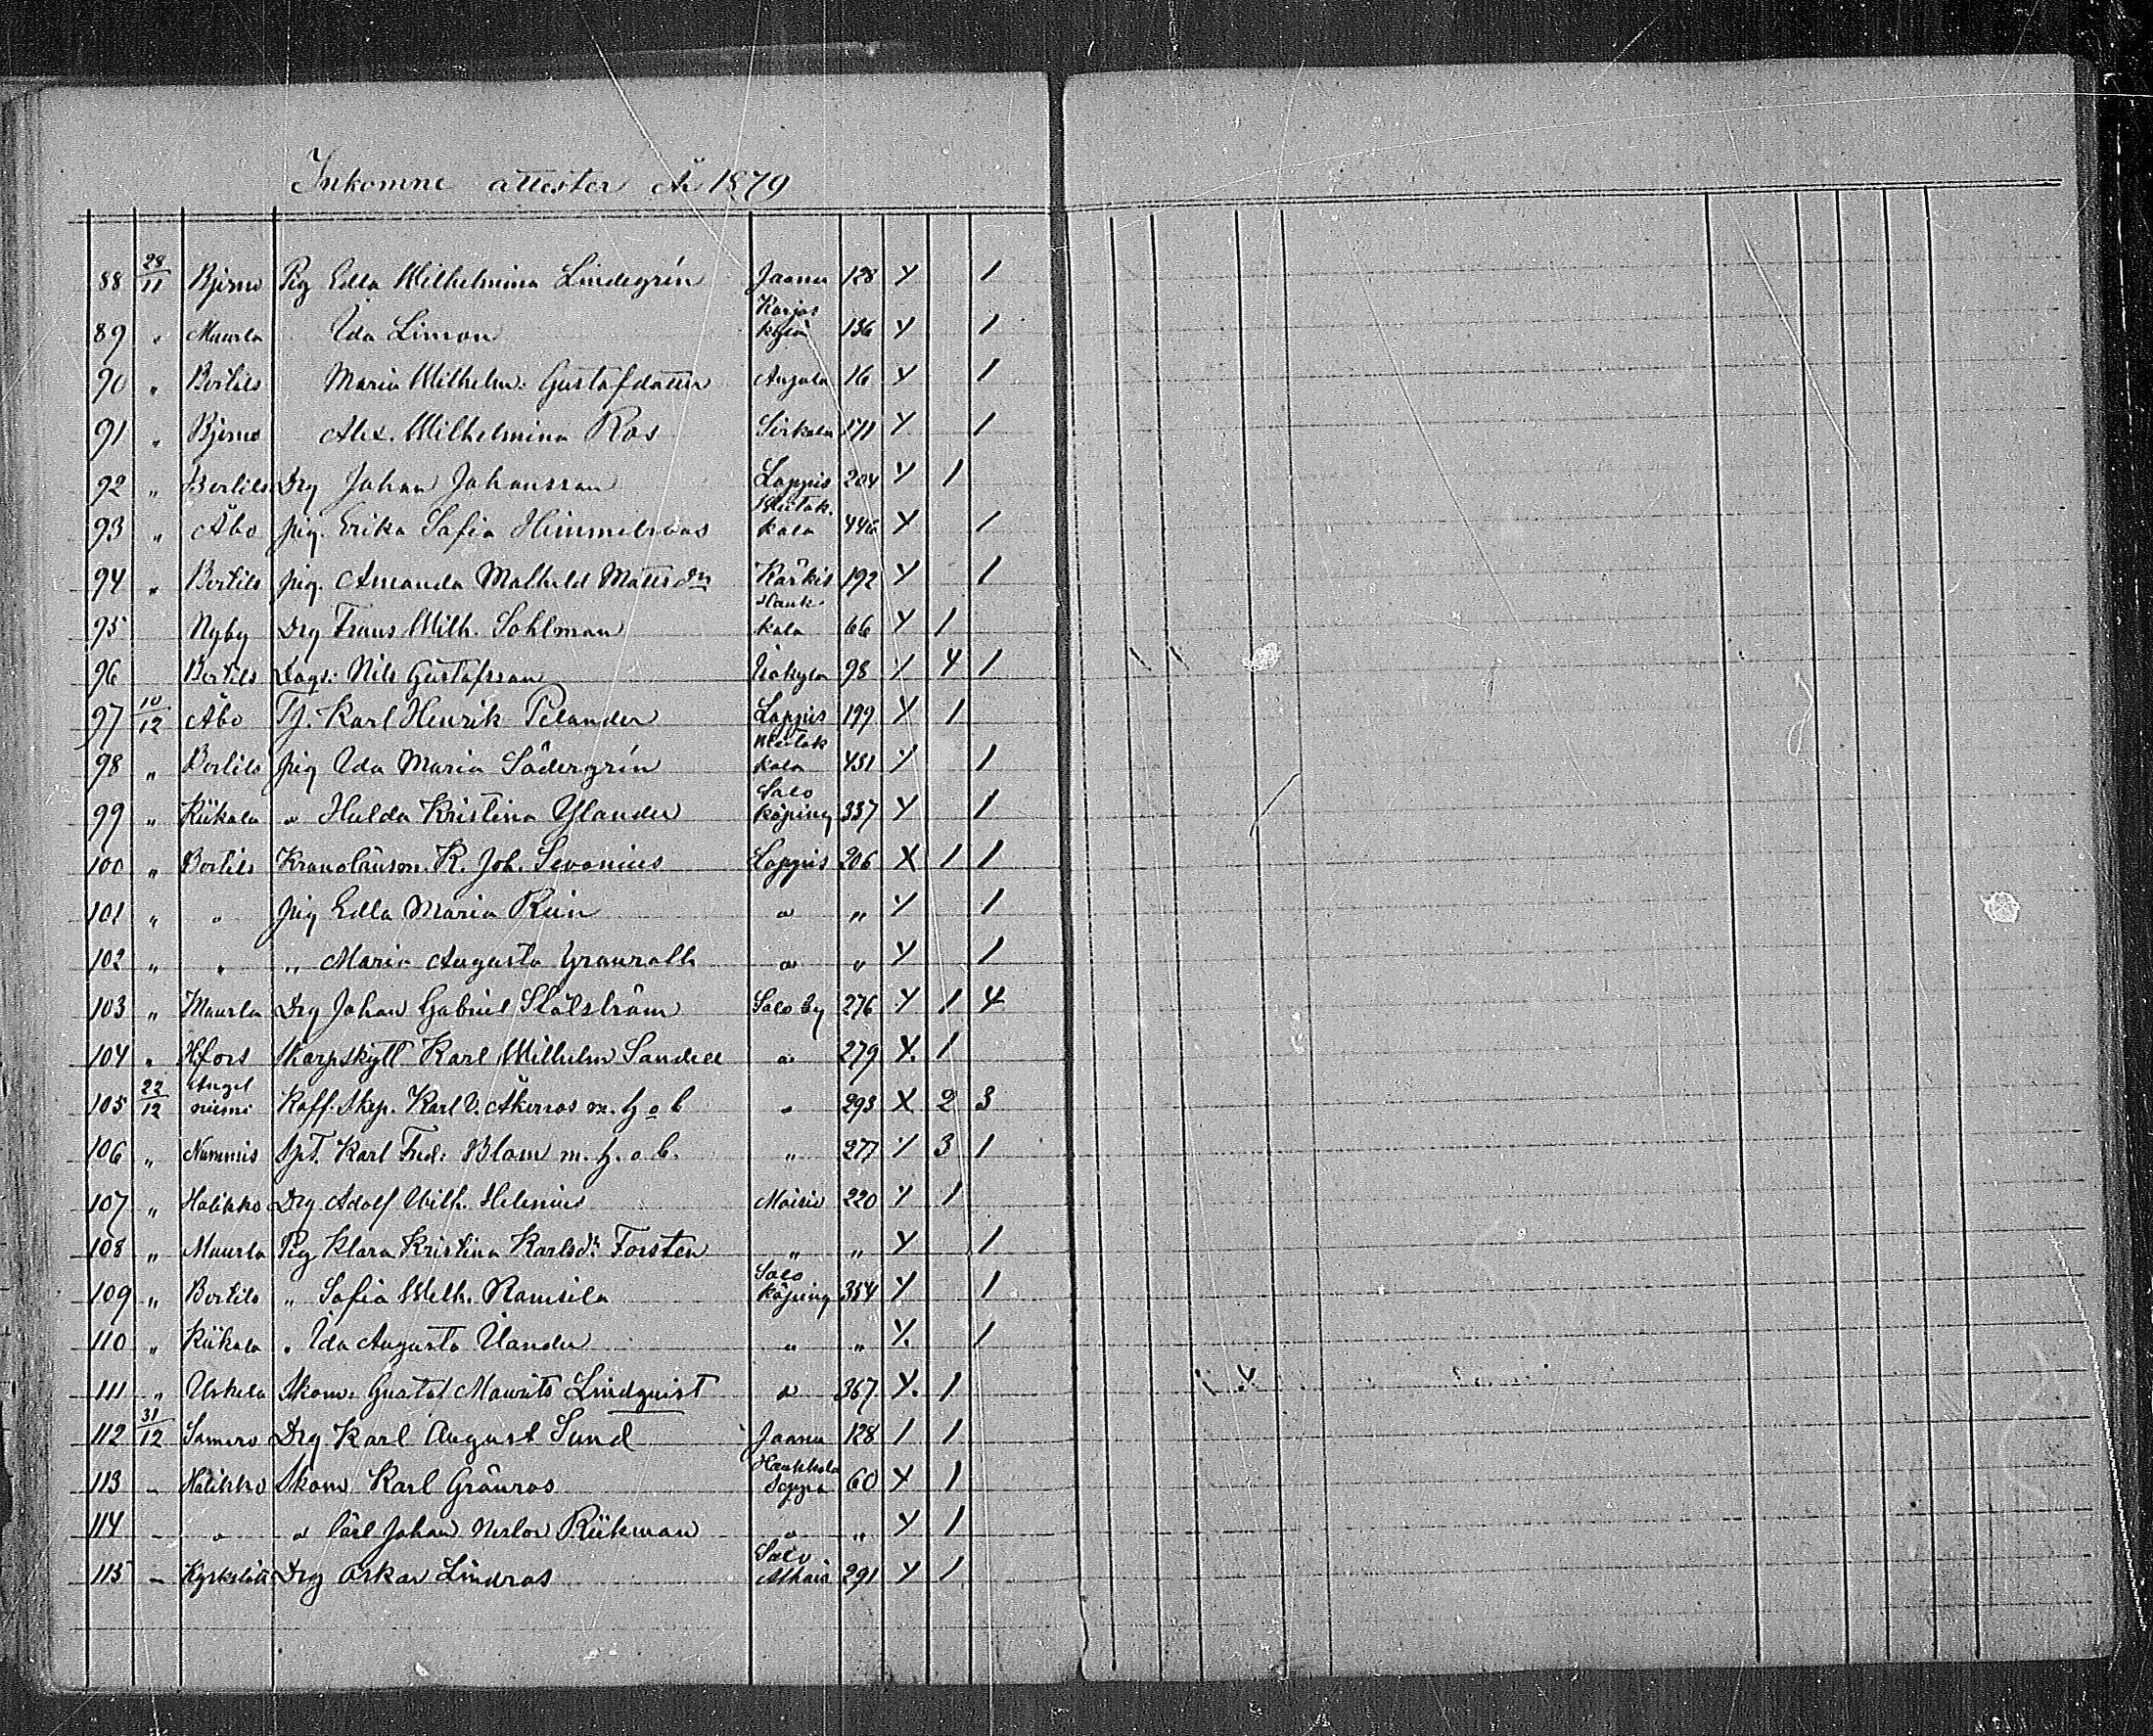 Inkomne attester År 1879
88 28/11 Bjerno Pig Edla Wilhelmina Lindegrén Jaanu 128 Y 1
89 " Muurla Ida Limon Karjaskylä 136 Y 1
90 " Bertils Maria Wilhelm: Gustafdotter Anjala 16 Y 1
91 " Bjerno Alex. Wilhelmina Ros Sirkala 171 Y 1
92 " Bertils Drg Johan Johansson Lappis 204 Y 1
93 " Åbo pig. Erika Sofia Himmelroos kala 446 Y 1
94 " Bertils pig. Amanda Mathild Mattsdr Kärkis 192 Y 1
95 Nyby Drg Frans Wilh. Sohlman Haukkala 66 Y 1
96 Bertils Dags: Nils Gustafsson Isokylä 98 / 4 1
97 10/12 Åbo Tj. Karl Henrik Pelander Lappis 199 Y 1
98 " Bertils pig Ida Maria Södergrén kala 451 Y 1
99 " Kiikala " Hulda Kristina Ylander Salo köping 337 Y 1
100 " Bertils Kronolänsm. K. Joh. Levonius Lappis 206 X 1 1
101 " " pig Edla Maria Rein " " Y 1
102 " " " Maria Augusta Granroth " " Y 1
103 " Muurla Drg Johan Gabriel Stålström Salo by 276 Y 1 4
104 " Hfors Skarpskytt Karl Wilhelm Sandell " 279 Y. 1
105 22/12 Angelniemi Koff. Skep. Karl V. Åkerros m. h o b " 293 X 2 3
106 " Nummis Spt. Karl Fred: Blom m. h. o b. " 277 / 3 1
107 " Halikko Drg Adolf Wilh. Helenius Moisio 220 Y 1
108 " Muurla Pig Klara Kristina Karlsdr Forsten " " Y 1
109 " Bertils " Sofia Wilh. Ramsila Salo köping 354 Y 1
110 " Kiikala " Ida Augusta Ulander " " Y. 1
111 " Uskela Skom: Gustaf Mawrits Lindquist " 367 Y. 1
112 31/12 Somero Drg Karl August Sund Jaanu 128 / 1
113 " Halikko Skom Karl Grönros Haukkala 60 Y 1
114 " " " Johan Riikman " " Y 1
115 " Kyrkslätt Drg Oskar Lindros Salo 291 Y 1